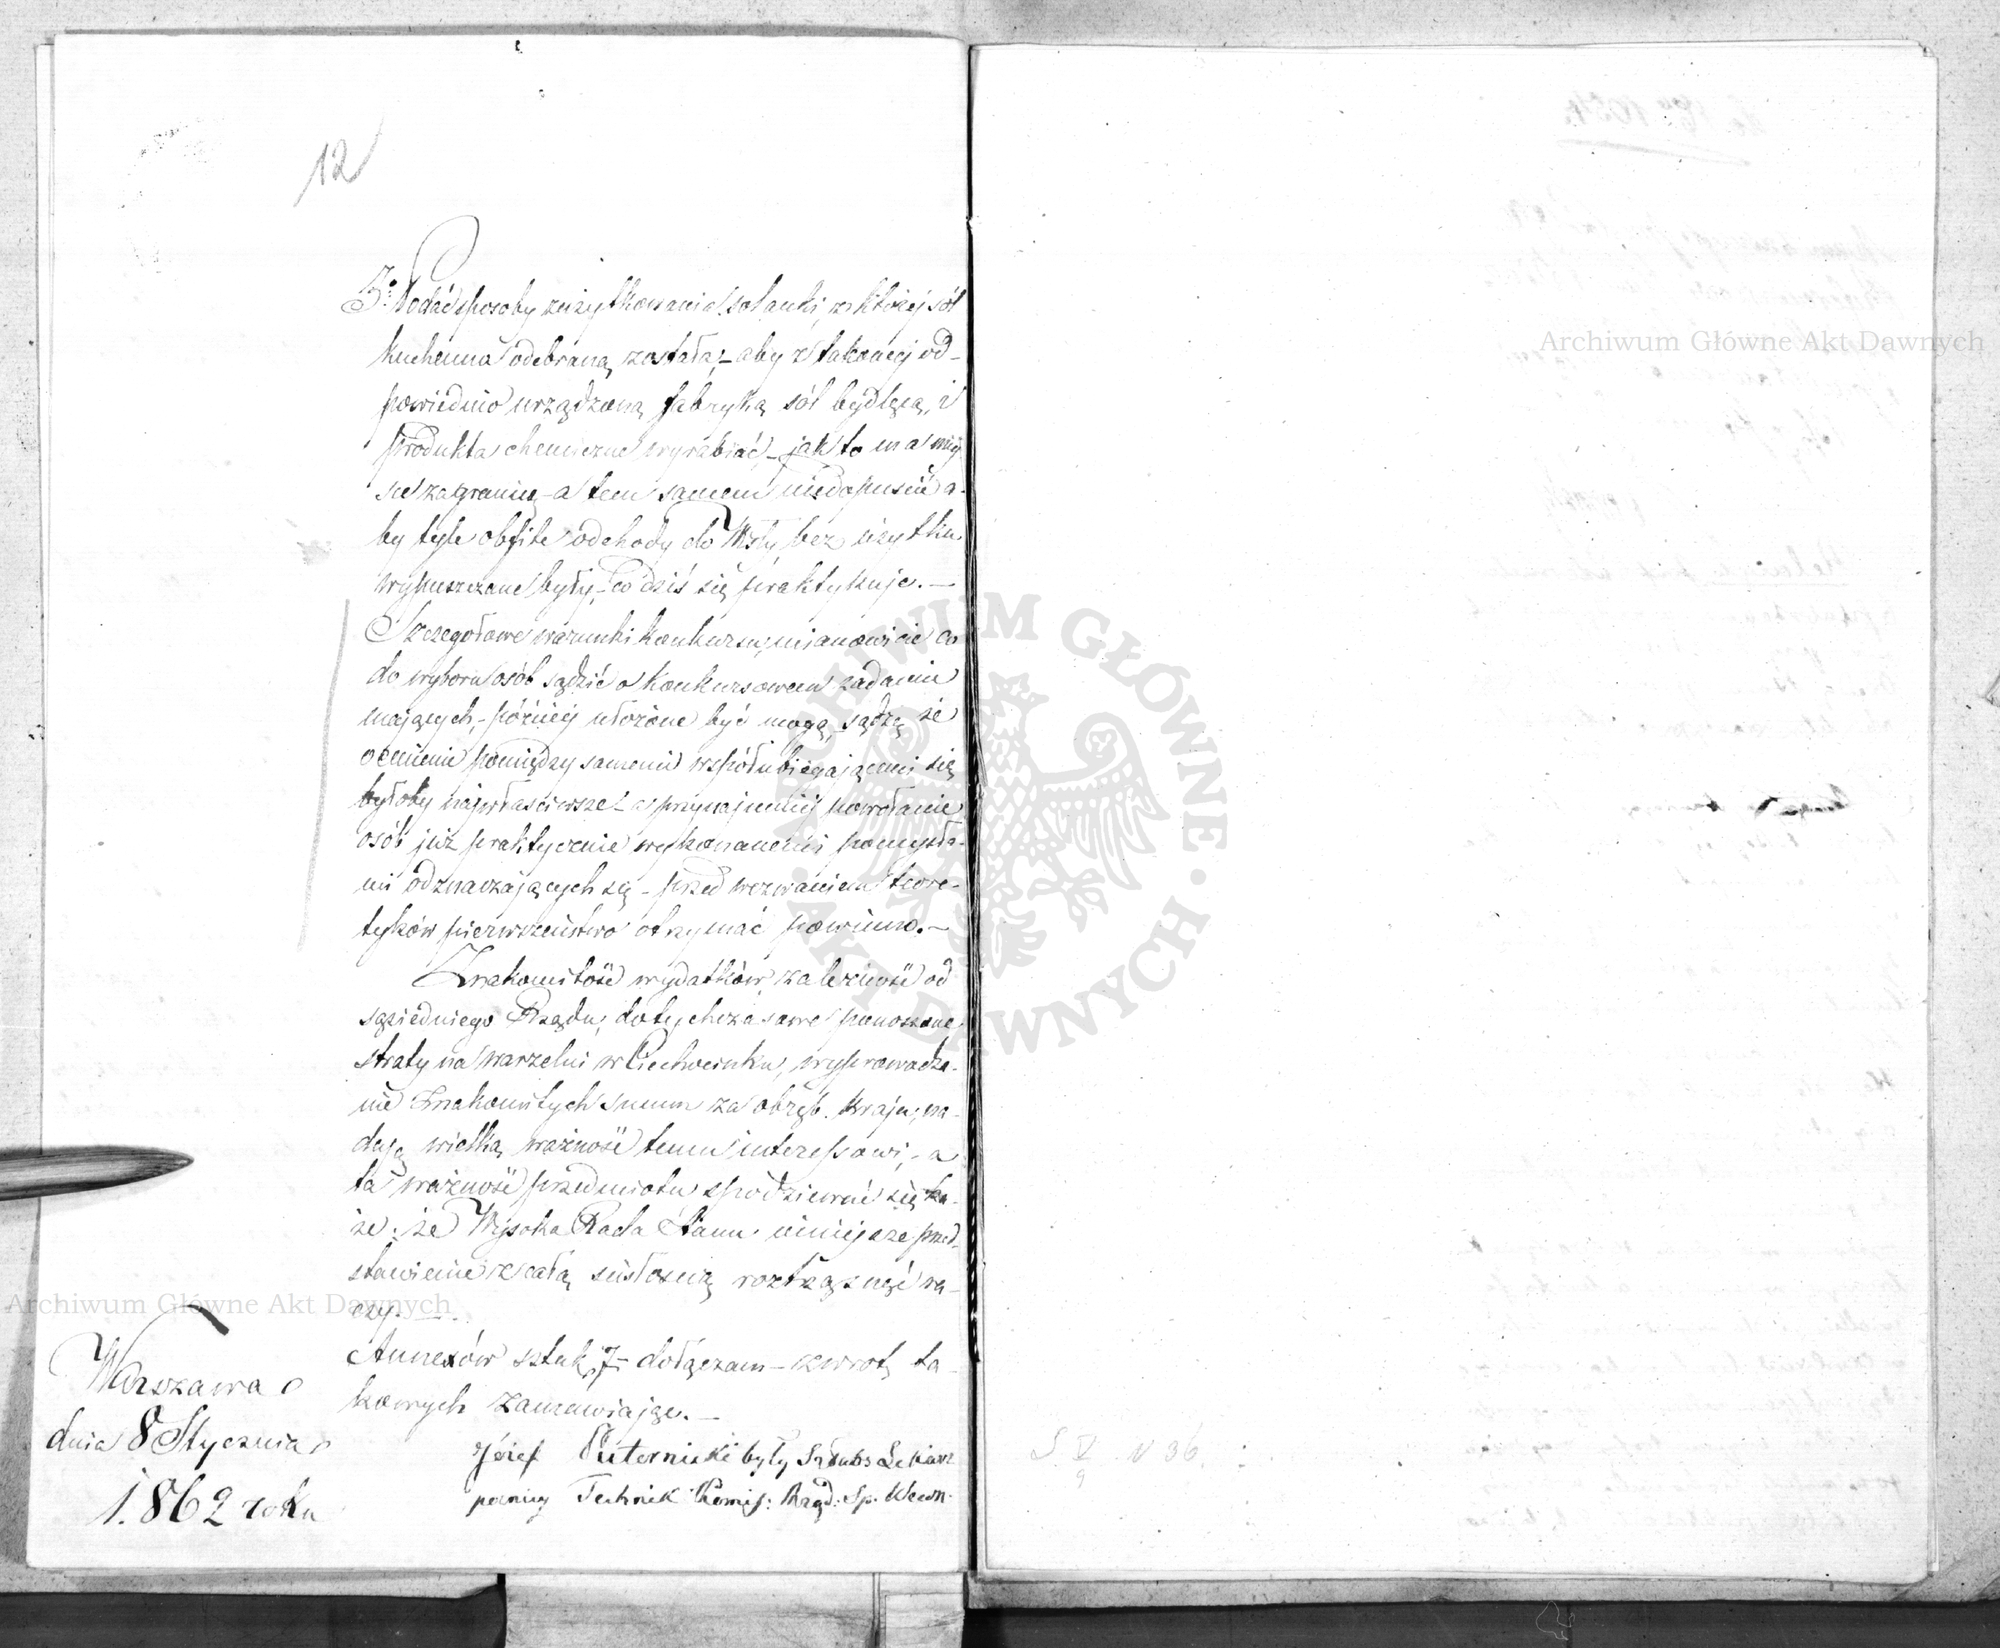 12
3º Podać sposoby zużytkowania solanki, z której sól
kuchenna odebraną została; – aby z takowej od-
powiednio urządzoną fabryką sól bydlęcą, i
produkta chemiczne wyrabiać, – jak to ma miej
sce zagranicą – a tem samem niedopuścić a-
by tyle obfite odchody do Wisły, bez użytku
wypuszczane były, – co dziś się praktykuje. –
Szczegółowe warunki konkursu, mianowicie co
do wyboru osób sądzić o konkursowem zadaniu
mających, – później ułożone być mogą, – sądzę że
ocenienie pomiędzy samemi współubiegającemi się
byłoby najwłaściwsze – a przynajmniej powołanie
osób już praktycznie wykonanemi pomysła-
mi odznaczających się – przed wezwaniem teore-
tyków pierwszeństwo otrzymać powinno. –
Znakomitość wydatków, zależność od
sąsiedniego Rządu, dotychczasowe ponoszone
straty na warzelni w Ciechocinku, wyprowadza-
nie znakomitych summ za obręb kraju, na-
dają wielką ważność temu interessowi, – a
ta ważność przedmiotu spodziewać się ka-
że; że Wysoka Rada Stanu niniejsze przed-
stawienie z całą ścisłością roztrząsnąć ra-
czy. –
Annexów sztuk 7 – dołączam – zwrot ta-
kowych zamawiając. –
Warszawa
dnia 8 Stycznia
1862 roku
Józef Puternicki były Lekarz
Technik Komis: Rząd: Sp. Wewn.
S. V/9 N 36.
Archiwum Główne Akt Dawnych
Archiwum Główne Akt Dawnych
ARCHIWUM GŁÓWNE · AKT DAWNYCH ·